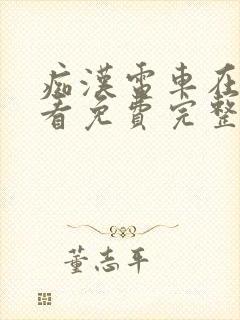 痴漢雷車在
看免費完整
董志平